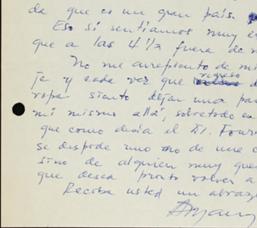 de que es un gran país.
Eso sí sentíamos muy
que a las 4½ fuera de
No me arrepiento de mi
je y cada vez que regreso
ropa siento dejar una par
mí misma allá, sobretodo en
que como decía el
se despide uno no de una
sino de alguien muy que
que desea pronto volver a
Reciba usted un abrazo